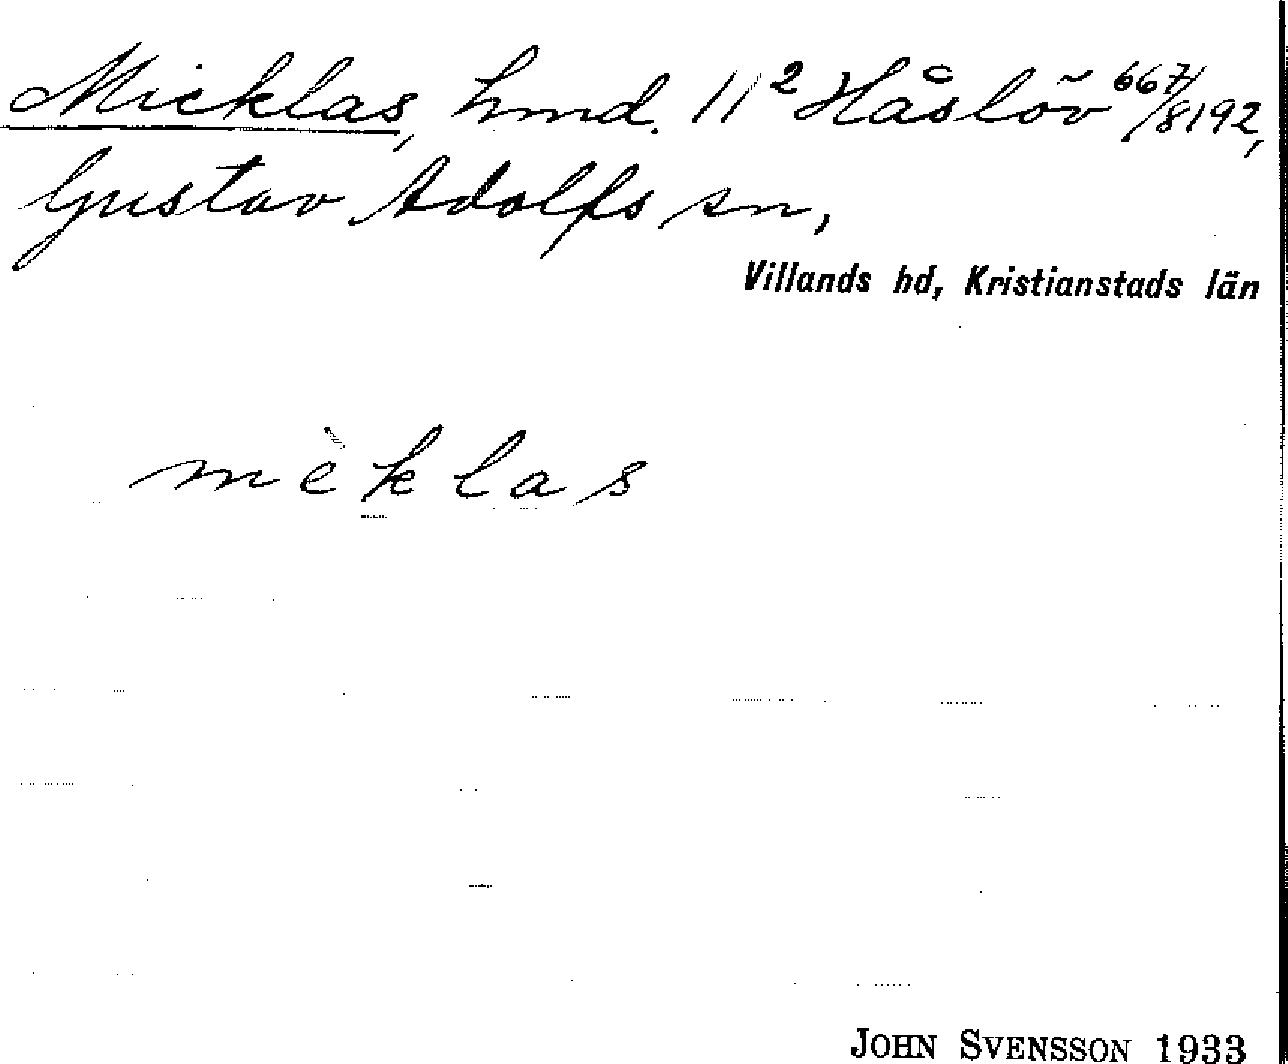 Micklas, hmd. 11² Håslöv 667/8192,
Gustav Adolfs sn,
Villands hd, Kristianstads län
mèklas
JOHN SVENSSON 1933